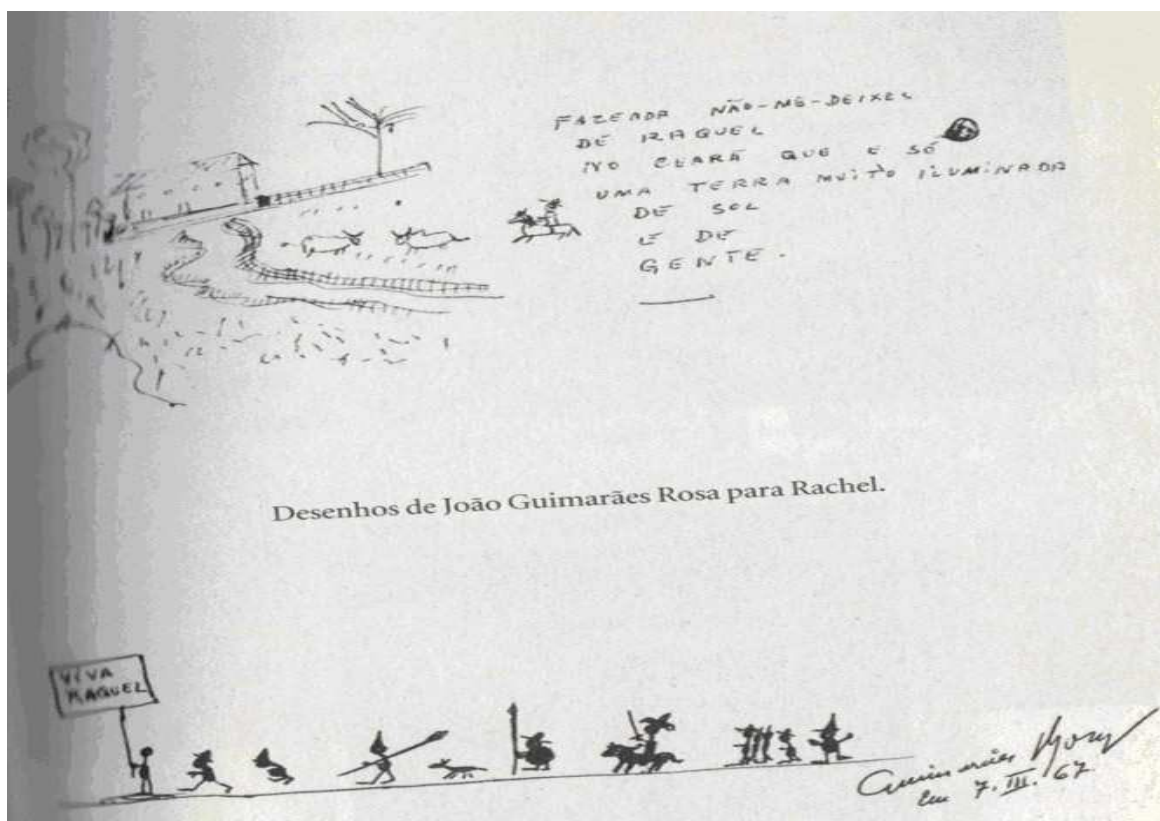 FAZENDA NÃO-ME-DEIXES
DE RAQUEL
NO CEARÁ QUE E SÓ
UMA TERRA MUITO ILUMINADA
DE SOL
E DE
GENTE.
Desenhos de João Guimarães Rosa para Rachel.
VIVA
RAQUEL
Guimarães Rosa
Em 7.III.67